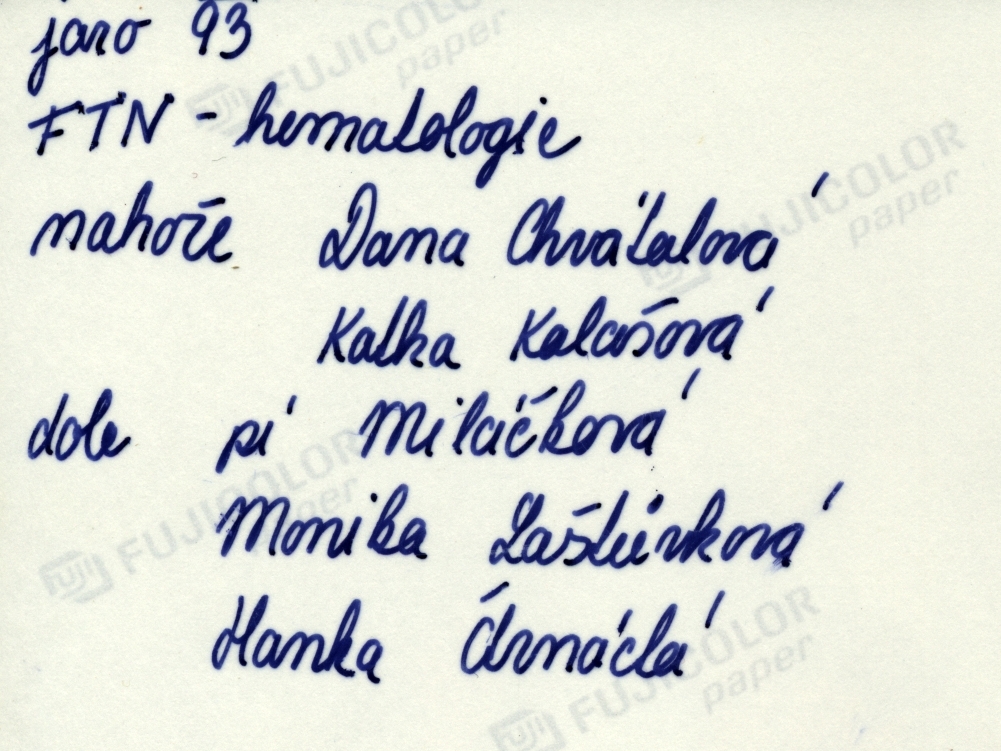 jaro 93
FTN - hematologie
nahoře Dana Chvátalová
Katka Kalašová
dole pí Miláčková
Monika Laštůvková
Hanka Čtrnáctá
FUJICOLOR paper
FUJICOLOR paper
FUJICOLOR paper
FUJICOLOR paper